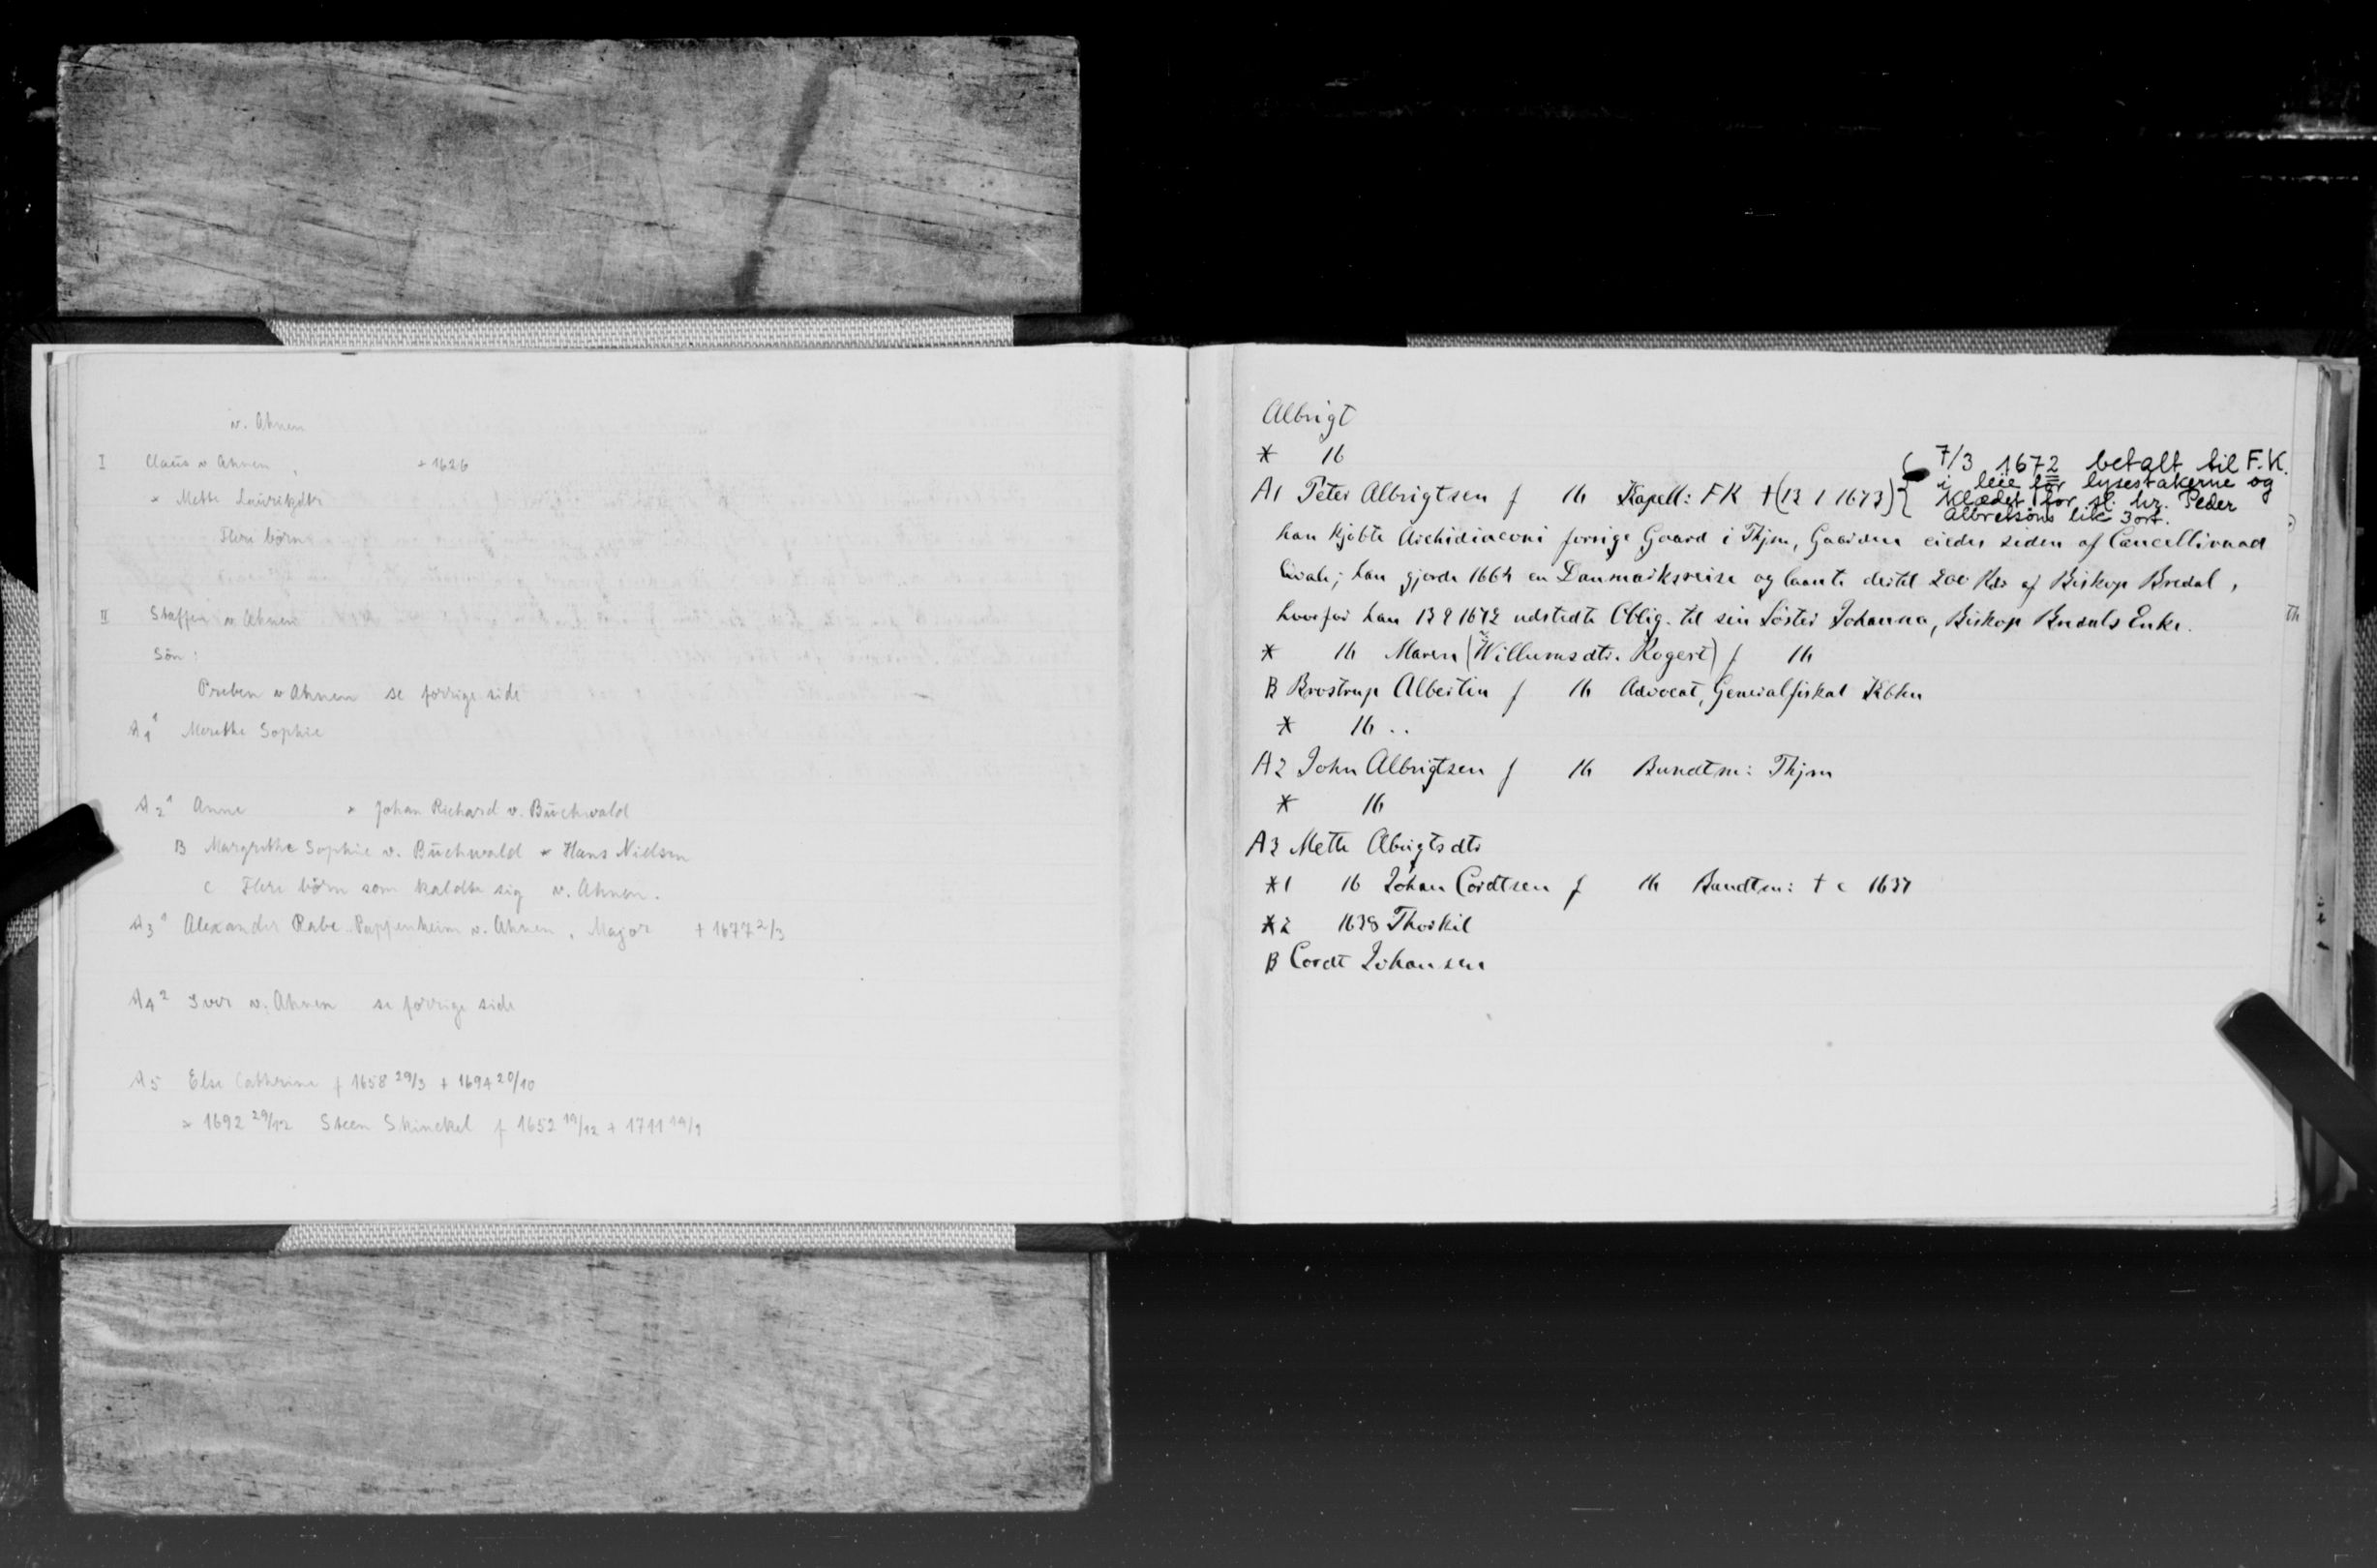 v. Ahnen
I Claus v Ahnen, + 1626
* Mette Lauritzdtr
Flere börn
II Staffen v. Ahnen
Sön:
Preben v Ahnen se forrige side
A1¹ Merethe Sophie
A2¹ Anne * Johan Richard v. Buchwald
B Margrethe Sophie v. Buchwald * Hans Nielsen
C Flere börn som kaldte sig v. Ahnen.
A3¹ Alexander Rabe Pappenheim v. Ahnen, Major + 1677 2/3
A4² Iver v. Ahnen se forrige side
A5 Else Cathrine f 1658 29/3 + 1694 20/10
* 1692 29/12 Steen Skinckel f 1652 19/12 + 1711 19/9
Albrigt
* 16
7/3 1672 betalt til F.K.
i leie for lysestakerne og
klædet for sl. hr. Peder
Albretsöns lik 3 ort.
A1 Peter Albrigtsen f 16 Kapell: FK +(13 1 1673)
han kjøbte Archidiaconi forrige Gaard i Thjm, Gaarden eiedes siden af Cancelliraad
han gjorde 1664 en Danmarksreise og laante dertil 200 Rdr af Biskop Bredal,
hvorfor han 13 9 1672 udstedte Oblig. til sin Söster Johanna, Biskop Bredals Enke.
* 16 Maren (Willumsdtr. Rogert) f 16
B Brostrup Albertin f 16 Advocat, Generalfiskal Kbhn
* 16 ..
A2 John Albrigtsen f 16 Bundtm: Thjm
* 16
A3 Mette Albrigtsdtr
*1 16 Johan Cordtsen f 16 Bundtm: + c 1637
*2 1638 Thorkil
B Cordt Johansen